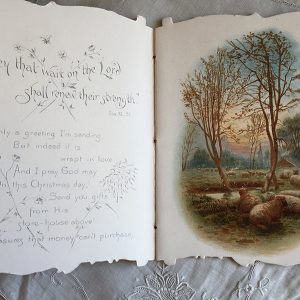 ey that wait on the Lord
shall renew their strength."
Isa. 40. 31.
nly a greeting I'm sending
But indeed it is
wrapt in love
And I pray God may
this Christmas day,
Send you gifts
from His
store-house above
easures that money can't purchase,